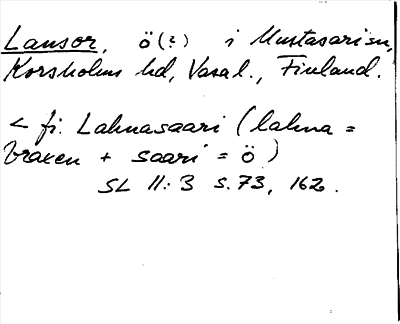 Lansor, ö(?) i Mustasari sn,
Korsholms hd, Vasa l., Finland.
< fi. Lahnasaari (lahna =
braxen + saari = ö)
SL II:3 s. 73, 162.